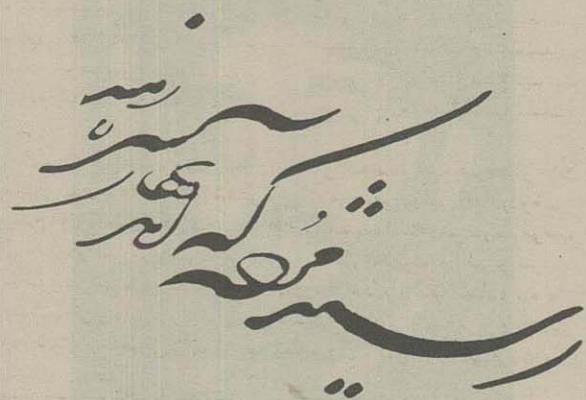 رسید مژده که آمد بهار و سبزه دمید